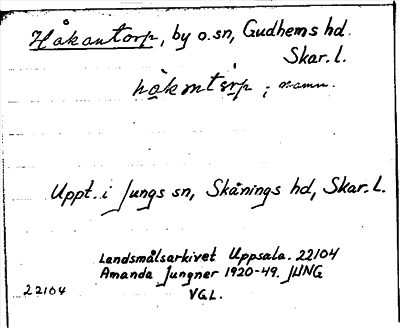 Håkantorp, by o.sn, Gudhems hd.
Skar. l.
håkmtårp ; namn.
Uppt. i Jungs sn, Skånings hd, Skar. l.
Landsmålsarkivet Uppsala. 22104
Amanda Jungner 1920-49. JUNG
22104
VGL.